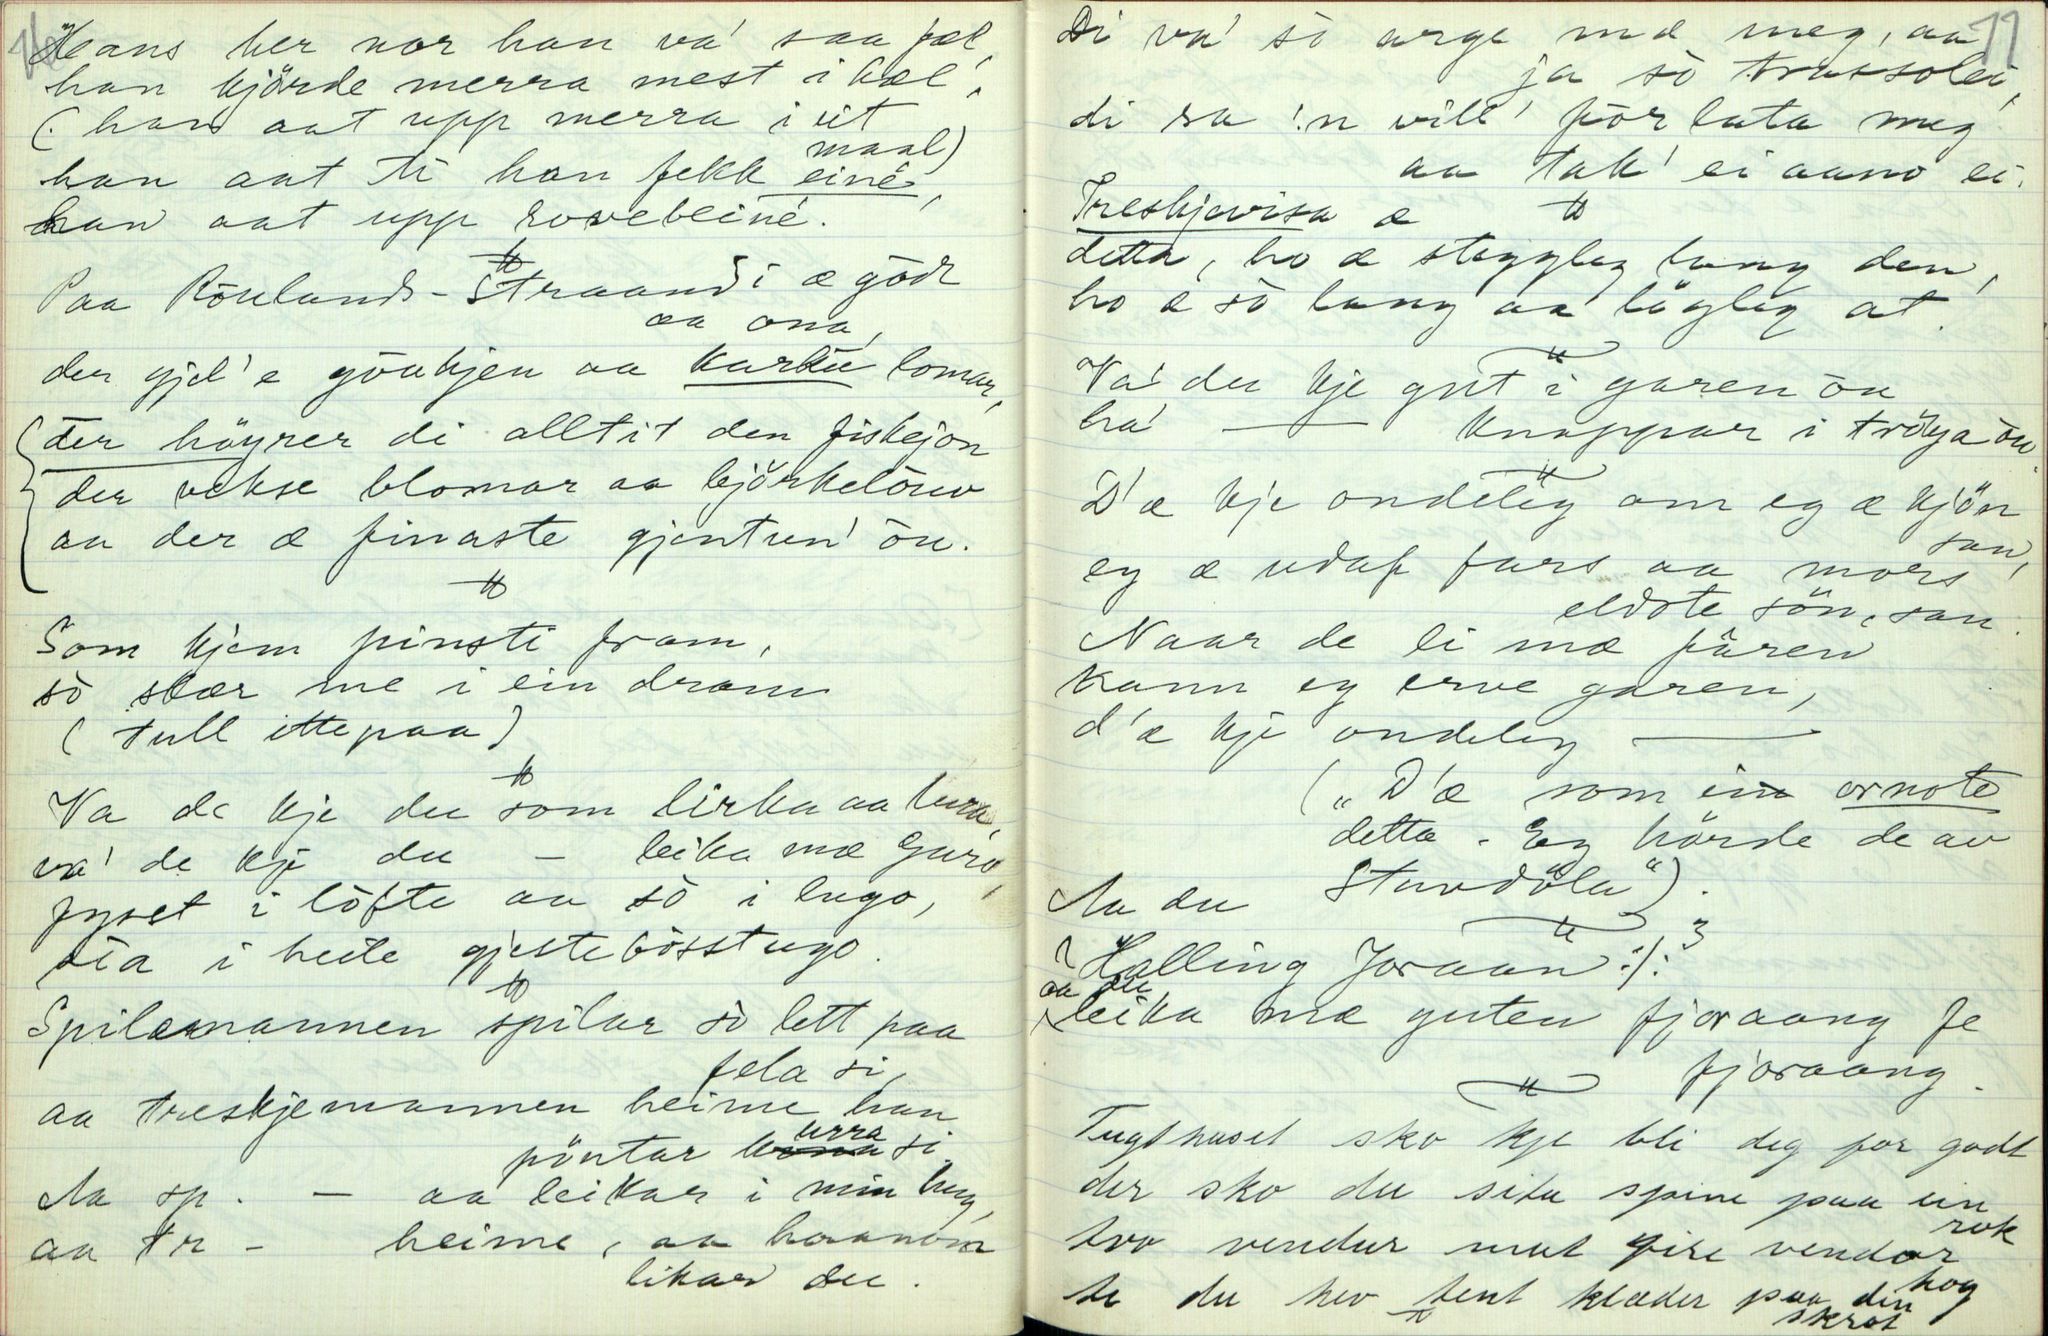 16
Hans her nor han va' saa fæl,
han kjörde merra mest i hæl,
(han aat upp merra i eit
maal)
han aat ti han fekk eine,
han aat upp rovebeine.
Paa Röulands-Straandi æ godt
aa ona,
der gjel'e göukjen aa karku lomar,
der höyrer di alltit den fiskejon
der vekse blomar aa björkelöuv
aa der æ finaste gjentun' öu.
Som kjem pinsti fram,
sò slær me i ein dram
(tull ittepaa)
Va de kje du som lirka aa lura,
va' de kje du – leika mæ Guro,
fyset i löfte aa sò i lugo,
sia i heile gjestebösstugo.
Spilemannen spilar sò lett paa
fela si,
aa treskjemannen heime han
pöntar kurra si.
Aa sp. – aa leikar i min hug,
aa tr – heime, aa haanom
likar du.
11
Di va' sò arge mæ meg, aa
ja sò trassole,
di sa 'n vill' forlata meg
aa tak' ei aano ei.
Treskjevisa æ
detta, ho æ steggleg lang den,
ho æ sò lang aa lögleg at.
Va' du kje gut i garen öu
ha' — knappar i tröya öu.
D'æ kje ondeleg om eg æ kjön
san,
eg æ udaf fars aa mors
eldste sön, san.
Naar de li mæ fåren
kann eg erve garen,
d'æ kje ondeleg —
("D'æ som ein ornote
detta. Eg hörde de av
Stuvdöla").
Aa du
Halling Joraan :/: 3
aa du
leika mæ guten fjoraang fe
fjoraang.
Tugthuset sko kje bli deg for godt
der sko du sita spine paa ein
rok
tvo vendur mat fire vendor
hog
te du hev tent klæder paa din
skrot